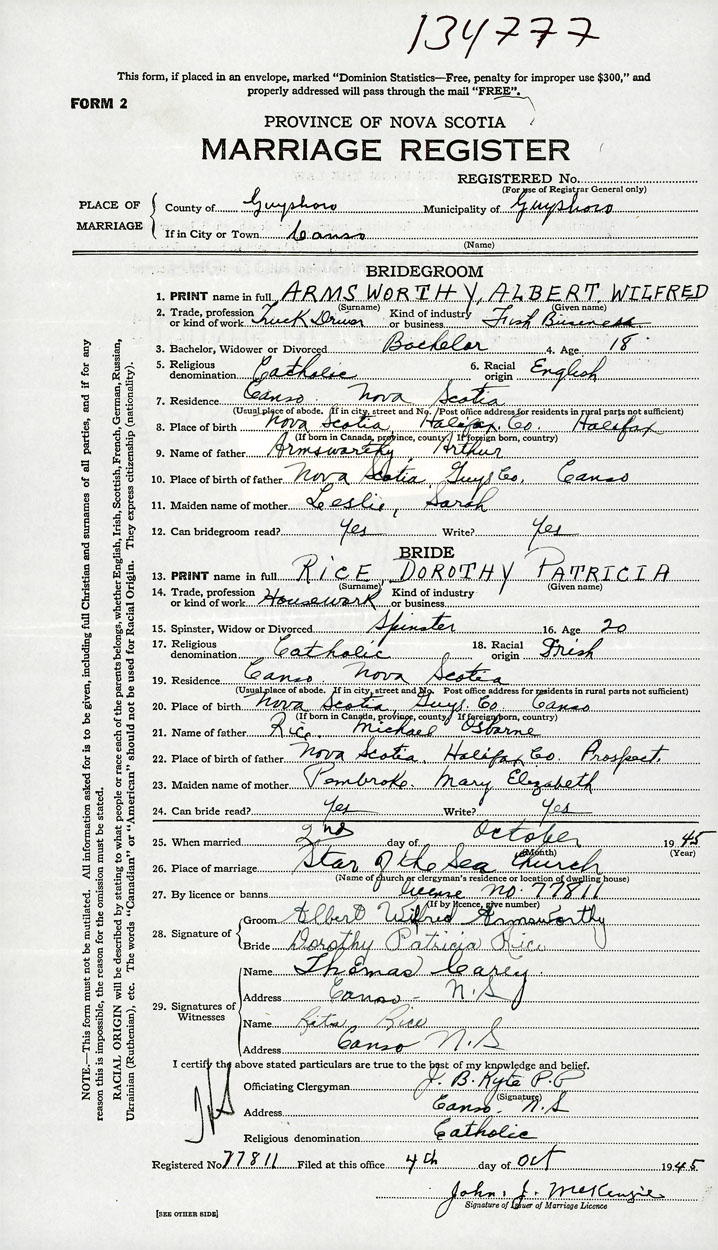 134777
This form, if placed in an envelope, marked "Dominion Statistics—Free, penalty for improper use $300," and
properly addressed will pass through the mail "FREE".
FORM 2
PROVINCE OF NOVA SCOTIA
MARRIAGE REGISTER
REGISTERED No.
(For use of Registrar General only)
PLACE OF MARRIAGE
County of Guysboro Municipality of Guysboro
If in City or Town Canso
(Name)
BRIDEGROOM
1. PRINT name in full ARMSWORTHY, ALBERT WILFRED
(Surname) (Given name)
2. Trade, profession or kind of work Truck Driver Kind of industry or business Fish Business
3. Bachelor, Widower or Divorced Bachelor 4. Age 18
5. Religious denomination Catholic 6. Racial origin English
7. Residence Canso Nova Scotia
(Usual place of abode. If in city, street and No. Post office address for residents in rural parts not sufficient)
8. Place of birth Nova Scotia Halifax Co. Halifax
(If born in Canada, province, county. If foreign born, country)
9. Name of father Armsworthy Arthur
10. Place of birth of father Nova Scotia Guys Co. Canso
11. Maiden name of mother Leslie, Sarah
12. Can bridegroom read? Yes Write? Yes
BRIDE
13. PRINT name in full RICE DOROTHY PATRICIA
(Surname) (Given name)
14. Trade, profession or kind of work Housework Kind of industry or business
15. Spinster, Widow or Divorced Spinster 16. Age 20
17. Religious denomination Catholic 18. Racial origin Irish
19. Residence Canso Nova Scotia
(Usual place of abode. If in city, street and No. Post office address for residents in rural parts not sufficient)
20. Place of birth Nova Scotia Guys. Co. Canso
(If born in Canada, province, county. If foreign born, country)
21. Name of father Rice Michael Osborne
22. Place of birth of father Nova Scotia. Halifax Co. Prospect.
23. Maiden name of mother Pembroke. Mary Elizabeth
24. Can bride read? Yes Write? Yes
25. When married 2nd day of October 1945
(Month) (Year)
26. Place of marriage Star of the Sea Church
(Name of church or clergyman's residence or location of dwelling house)
27. By licence or banns license no. 77811
(If by licence, give number)
28. Signature of
Groom Albert Wilfred Armsworthy
Bride Dorothy Patricia Rice
29. Signatures of Witnesses
Name Thomas Carey.
Address Canso - N.S
Name Rita Rice
Address Canso N.S
I certify the above stated particulars are true to the best of my knowledge and belief.
Officiating Clergyman J. B. Kyte P.P
(Signature)
Address Canso. N.S
Religious denomination Catholic
Registered No 77811 Filed at this office 4th day of Oct 1945
John. J. McKenzie
Signature of Issuer of Marriage Licence
[SEE OTHER SIDE]
NOTE.—This form must not be mutilated. All information asked for is to be given, including full Christian and surnames of all parties, and if for any
reason this is impossible, the reason for the omission must be stated.
RACIAL ORIGIN will be described by stating to what people or race each of the parents belongs, whether English, Irish, Scottish, French, German, Russian,
Ukrainian (Ruthenian), etc. The words "Canadian" or "American" should not be used for Racial Origin. They express citizenship (nationality).